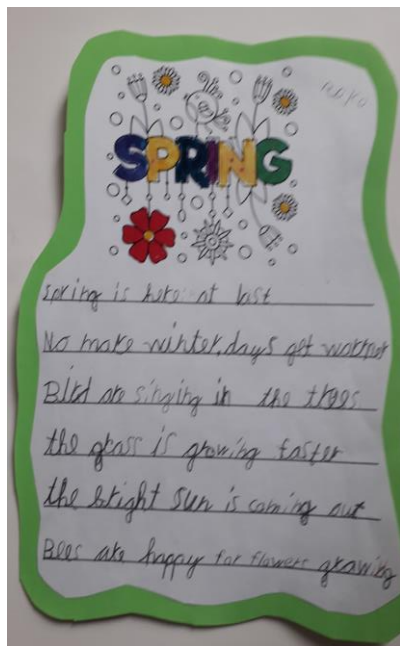 SPRING
spring is here at last
No more winter, days get warmer
Bird are singing in the trees
the grass is growing faster
the bright sun is coming out
Bees are happy for flowers growing